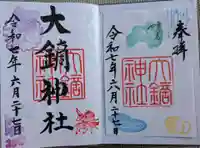 奉拝
大鏑神社
令和七年六月二十二日
大鏑神社
大鏑神社
令和七年六月二十二日